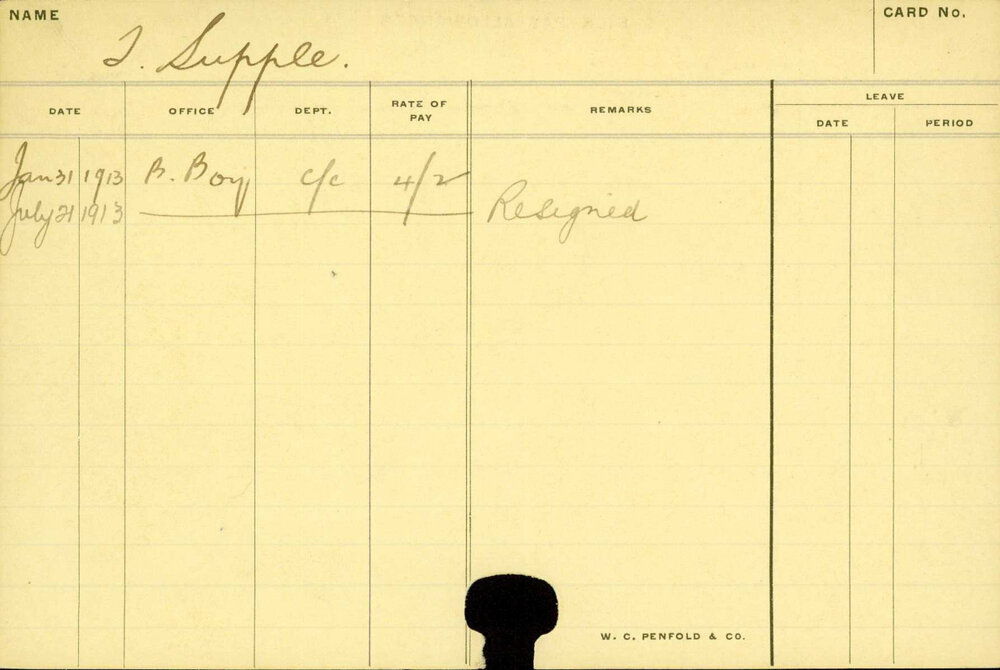 NAME
CARD No.
T. Supple.
DATE OFFICE DEPT. RATE OF PAY REMARKS LEAVE
DATE PERIOD
Jan 31 1913 B. Boy c/c 4/2
July 21 1913 Resigned
W. C. PENFOLD & CO.